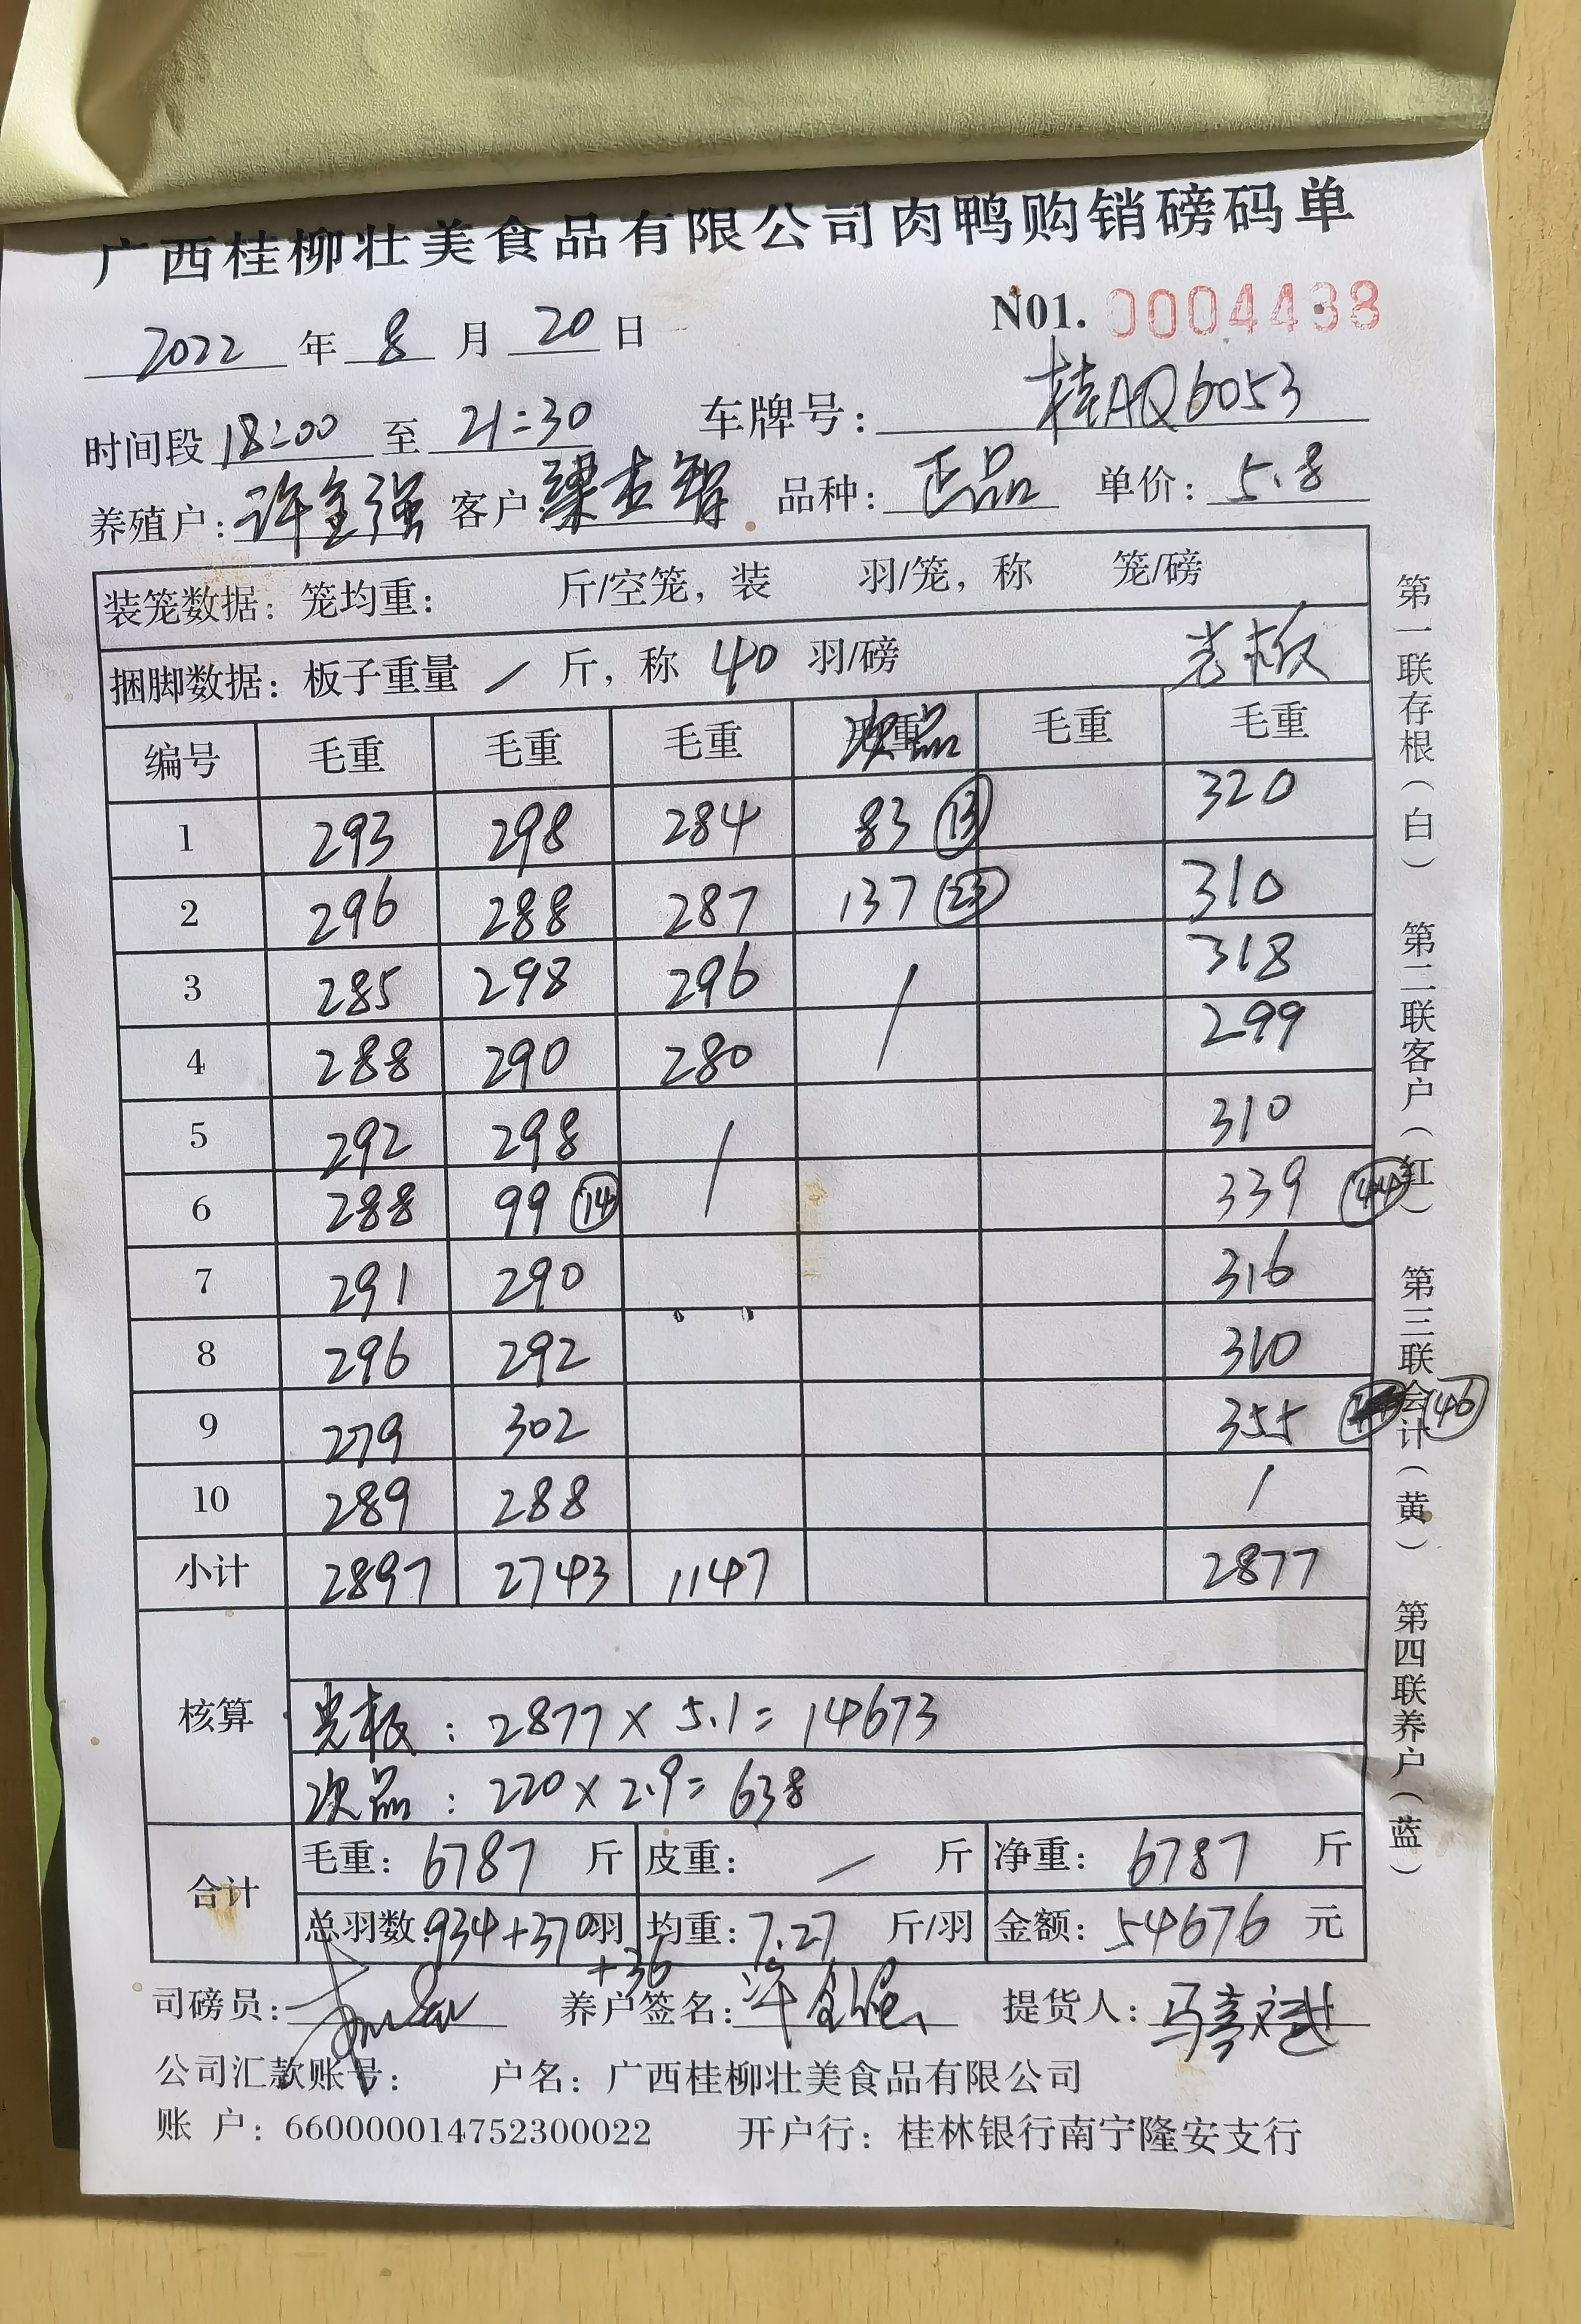 广西桂柳壮美食品有限公司肉鸭购销磅码单
N01. 0004438
2022 年 8 月 20 日
时间段 18:00 至 21:30 车牌号: 桂AQ6053
养殖户: 许金强 客户 梁 智 品种: 正品 单价: 5.8
装笼数据: 笼均重: 斤/空笼, 装 羽/笼, 称 笼/磅
捆脚数据: 板子重量 / 斤, 称 40 羽/磅 光板
编号 毛重 毛重 毛重 次品 毛重 毛重
1 293 298 284 83 (13) 320
2 296 288 287 137 (23) 310
3 285 298 296 / 318
4 288 290 280 299
5 292 298 / 310
6 288 99 (14) 339 (44)
7 291 290 316
8 296 292 310
9 279 302 355 (46)
10 289 288 /
小计 2897 2743 1147 2877
核算
光板: 2877 × 5.1 = 14673
次品: 220 × 2.9 = 638
合计
毛重: 6787 斤 皮重: / 斤 净重: 6787 斤
总羽数: 934+370羽 均重: 7.27 斤/羽 金额: 54676 元
+36
司磅员: 养户签名: 许金强 提货人: 马 斌
公司汇款账号: 户名: 广西桂柳壮美食品有限公司
账 户: 660000014752300022 开户行: 桂林银行南宁隆安支行
第一联存根(白) 第二联客户(红) 第三联会计(黄) 第四联养户(蓝)